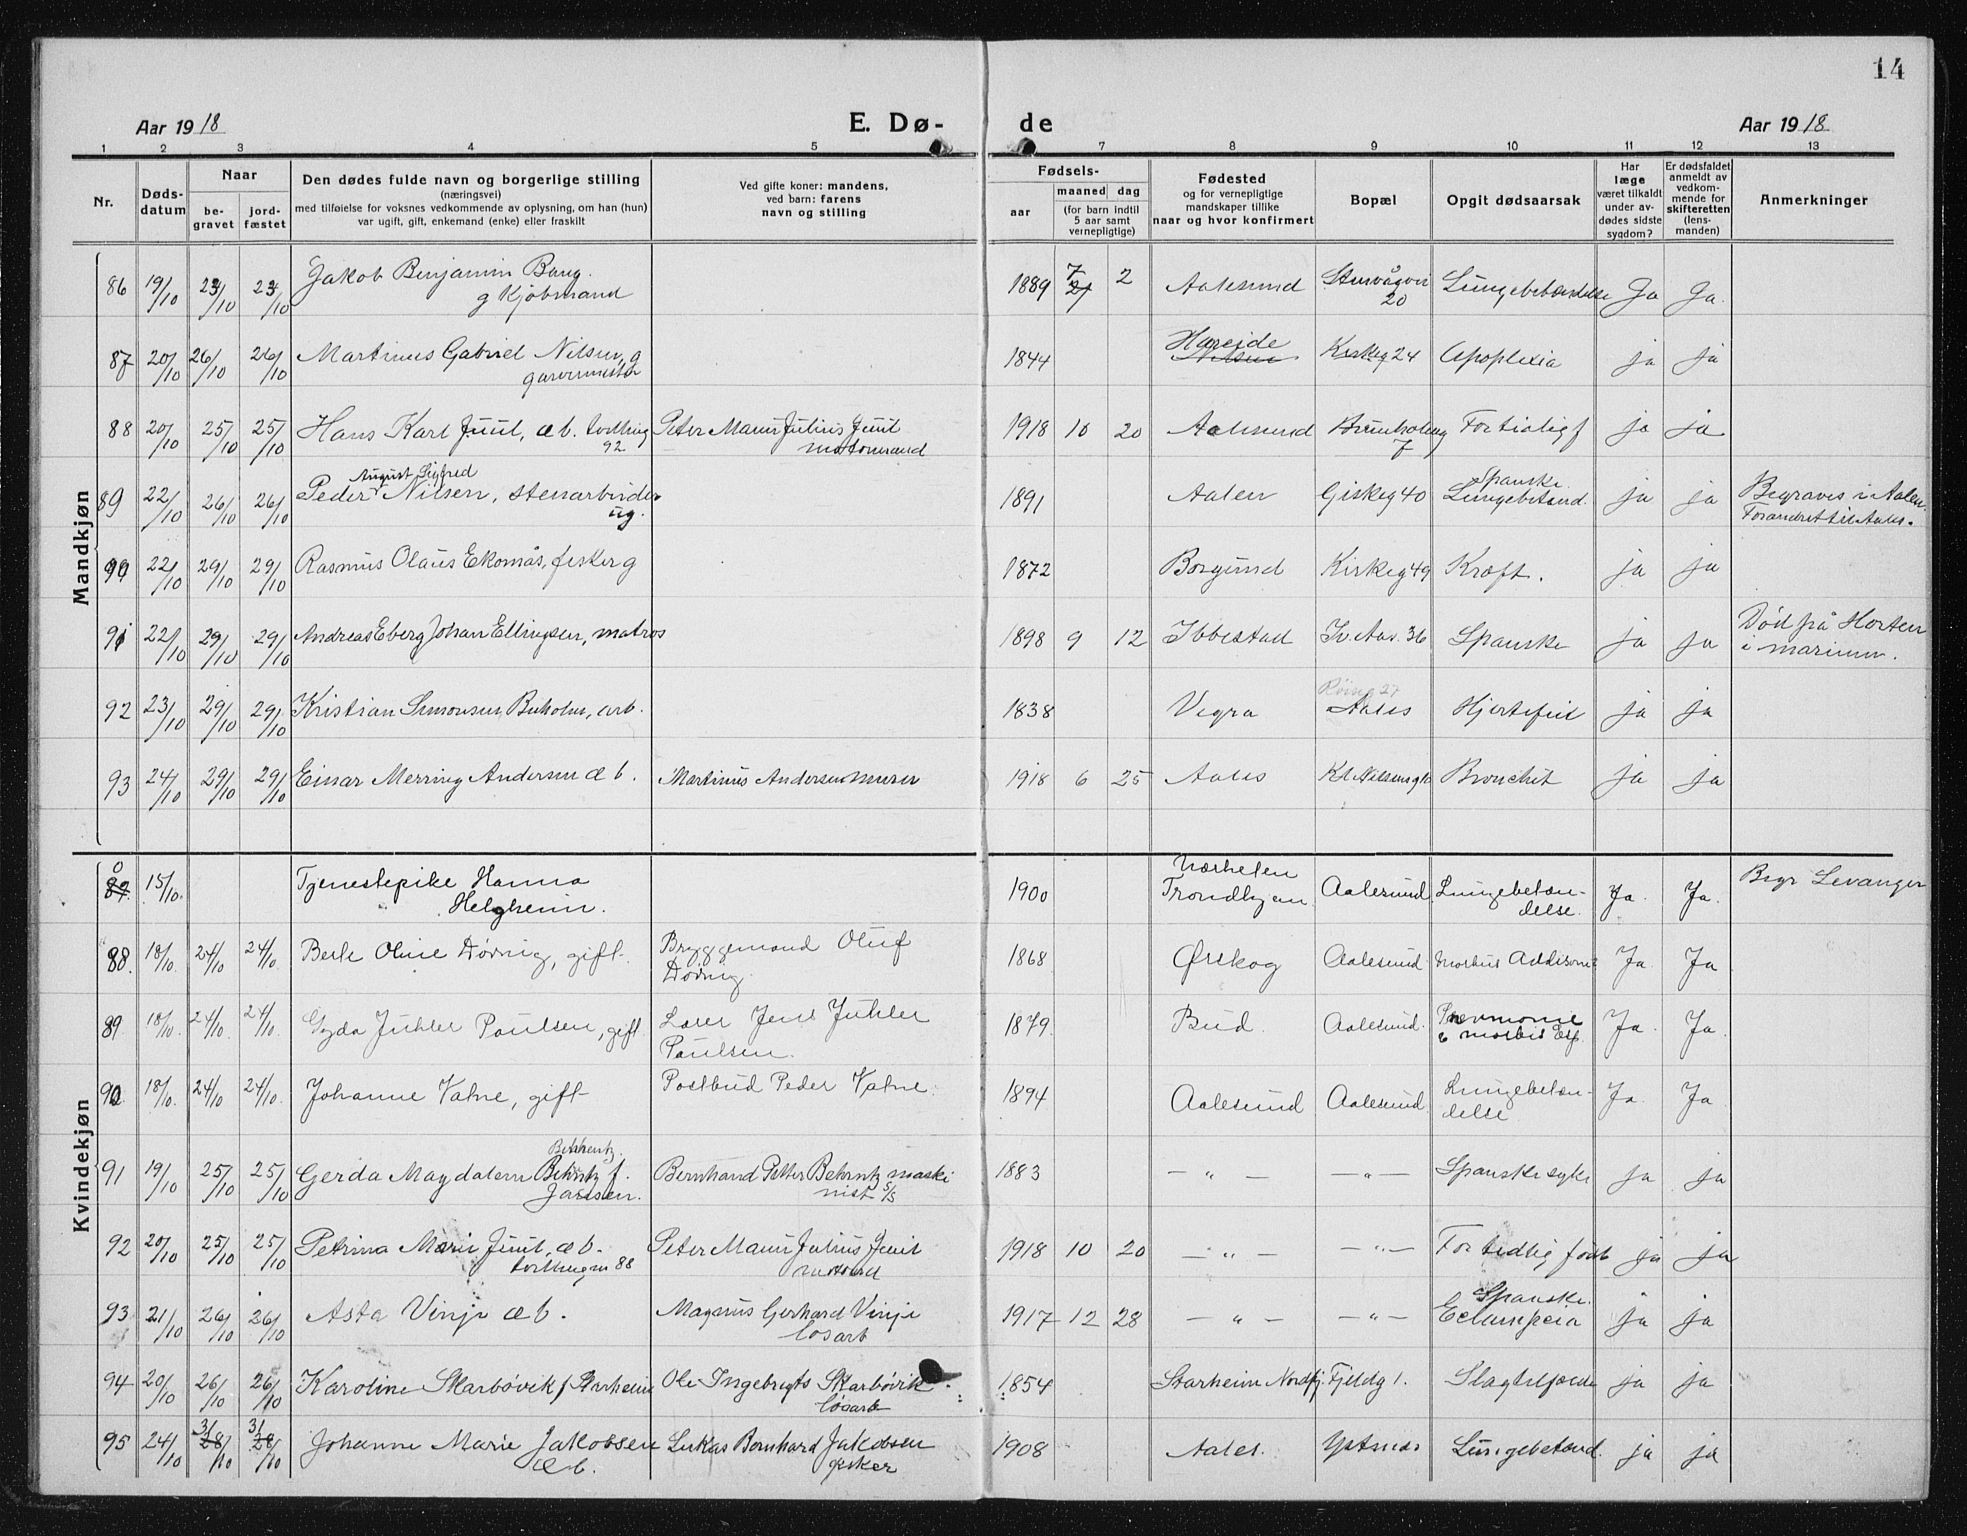 14
Aar 1918 E. Dø- de Aar 1918
1 2 3 4 5 7 8 9 10 11 12 13
Nr.
Døds-
datum
Naar
be-
gravet
jord-
fæstet
Den dødes fulde navn og borgerlige stilling
(næringsvei)
med tilføielse for voksnes vedkommende av oplysning, om han (hun)
var ugift, gift, enkemand (enke) eller fraskilt
Ved gifte koner: mandens,
ved barn: farens
navn og stilling
Fødsels-
aar
maaned dag
(for barn indtil
5 aar samt
vernepligtige)
Fødested
og for vernepligtige
mandskaper tillike
naar og hvor konfirmert
Bopæl
Opgit dødsaarsak
Har
læge
været tilkaldt
under av-
dødes sidste
sygdom?
Er dødsfaldet
anmeldt av
vedkom-
mende for
skifteretten
(lens-
manden)
Anmerkninger
Mandkjøn
86 19/10 23/10 23/10 Jakob Benjamin Bang. 1889 7 2 Aalesund 20 Lungebetændelse Ja Ja.
g Kjøbmand
87 20/10 26/10 26/10 Martinus Gabriel Nilsen, g 1844 Hareide Kirkeg 24 Apoplexia ja ja
garvermester
88 20/10 25/10 25/10 Hans Karl Juul, æb. tvilling Peter Maurs Julius Juul 1918 10 20 Aalesund 7 For tidlig f ja ja
92 motormand
August Sigfred
89 22/10 26/10 26/10 Peder Nilsen, stenarbeider 1891 Aalen Giskeg 40 Spanske Lungebetænd. ja ja Begraves i Aalen.
ug. Forandret til Aales.
90 22/10 29/10 29/10 Rasmus Olaus Ekornås, fisker g 1872 Borgund Kirkeg 49 Kræft. ja ja
91 22/10 29/10 29/10 Andreas Eberg Johan Ellingsen, matros 1898 9 12 Ibbestad Iv. Aas. 36 Spanske ja ja Død på Horten
i marinen.
92 23/10 29/10 29/10 Kristian Simonsen Buholm, arb. 1838 Vigra Aales Hjertefeil ja ja
93 24/10 29/10 29/10 Einar Merring Andersen æb. Martinus Andersen murer 1918 6 25 Aales Kl. Nilsensg 10 Bronchit ja ja
Kvindekjøn
87. 15/10. Tjenestepike Hanna 1900 Værhelen Aalesund Lungebetæn- Ja. Ja. Begr Levanger
Helgheim. Trondhjem delse.
88. 18/10. 24/10 24/10. Berte Oline Dørvig, gift. Bryggemand Oluf 1868 Ørskog Aalesund Morbus Addisoni Ja Ja
Dørvig
89. 18/10. 24/10. 24/10. Gyda Juhler Paulsen, gift Loser Jens Juhler 1879. Bud. Aalesund. Pnevmonie Ja. Ja.
Paulsen.
90 18/10. 24/10 24/10. Johanne Vatne, gift Postbud Peder Vatne. 1894 Aalesund Aalesund Lungebetæn- Ja. Ja.
delse
91 19/10 25/10 25/10 Gerda Magdalene Behrntz f. Bernhard Petter Behrntz maski 1883 — " — — " — Spanske syke ja ja
Jansen. nist s/s
92 20/10 25/10 25/10 Petrina Marie Juul, æb. Peter Maurs Julius Juul 1918 10 20 — " — — " — For tidlig født ja ja
tvilling m 88 motormd
93 21/10 26/10 26/10 Asta Vinje æb. Magnus Gerhard Vinje 1917 12 28 — " — — " — Spanske. ja ja
løsarb Eclampsia
94 20/10 26/10 26/10 Karoline Skarbøvik f Starheim Ole Ingebrigts Skarbøvik. 1854 Starheim Nordfj. Fjeldg 1. Slagtilfælde ja ja
løsarb
95 24/10 31/10 31/10 Johanne Marie Jakobsen Lukas Bernhard Jakobsen 1908 Aales. Ystenes Lungebetænd. ja ja
æb. fisker